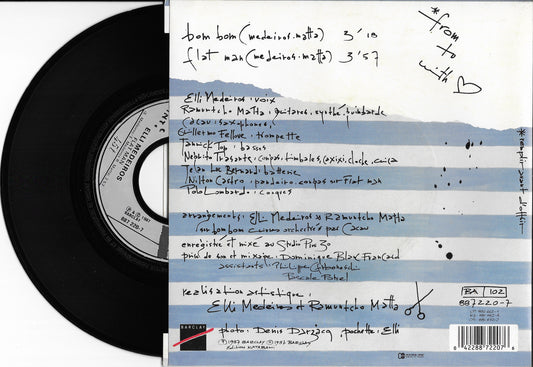 bom bom (medeiros.matta) 3'10
flat man (medeiros.matta) 3'57
*from
to
with
Elli Medeiros : voix
Ramuntcho Matta : guitares, synthé,
Cacau : saxophones,
Guillermo Fellove : trompette
Yannick Top : basses
Jean Lou Bernard : batterie
Nilton Castro : pandeiro, congas sur Flat man
Polo Lombardo : congas
arrangements : Elli Medeiros et Ramuntcho Matta
sur bom bom cuivres orchestrés par Cacau
enregistré et mixé au Studio
prise de son et mixage : Dominique Blanc Francard
assistants : Philippe
Pascale
réalisation artistique :
Elli Medeiros et Ramuntcho Matta
photo : Denis Darzacq, pochette : Elli
BARCLAY
℗ 1987 BARCLAY © 1987 BARCLAY
*remplir avant d'offrir
BA 102
887220-7
0 42288 72207 8
ELLI MEDEIROS
887 220-7